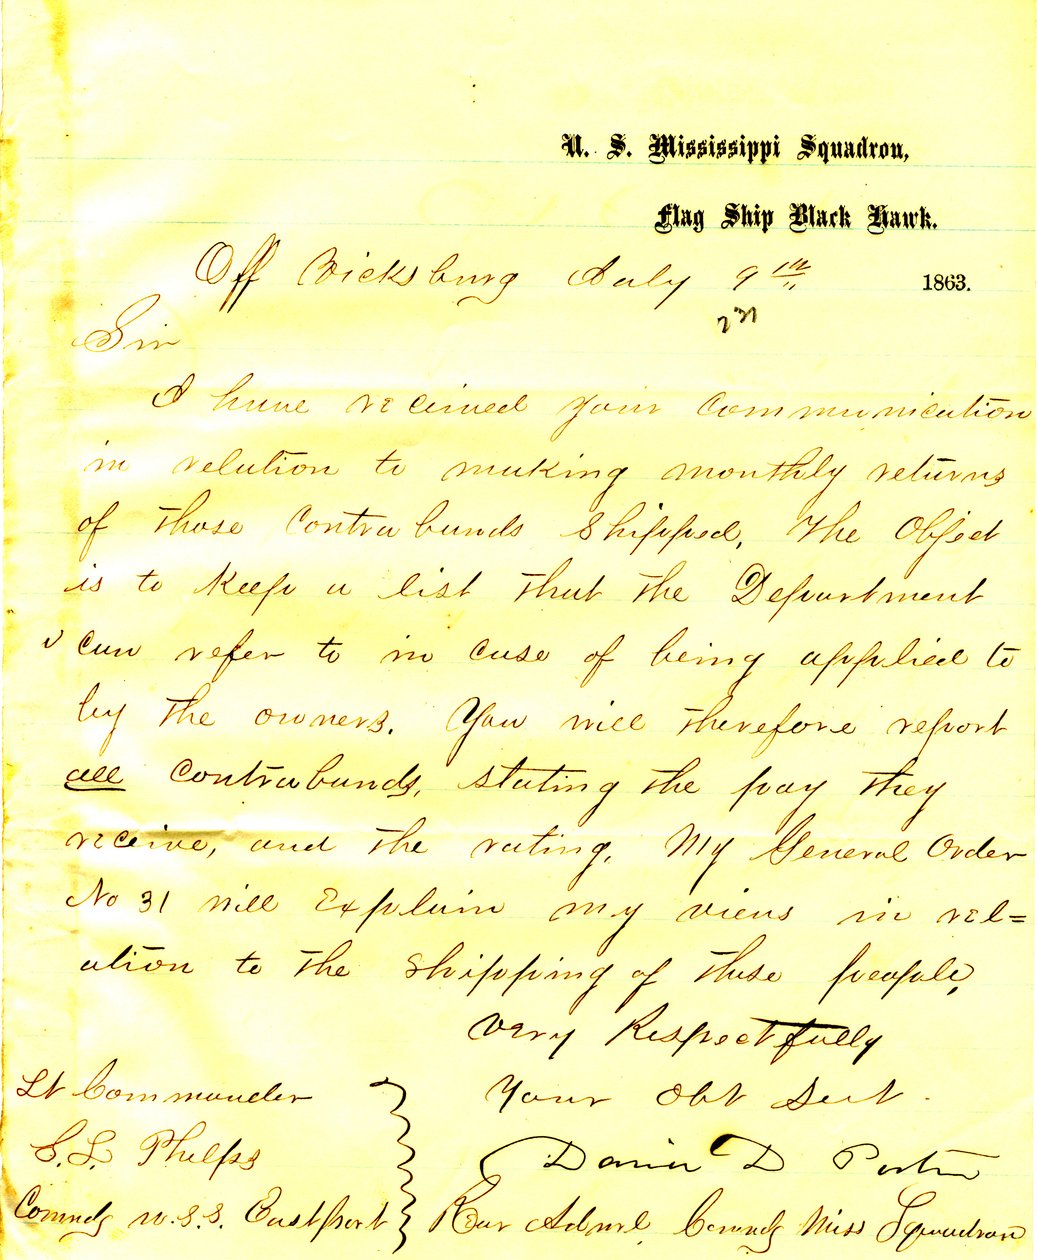 U. S. Mississippi Squadron,
Flag Ship Black Hawk.
Off Vicksburg July 9th 1863.
Sir
I have received your Communication
in relation to making monthly returns
of those Contrabands Shipped, The Object
is to Keep a list that the Department
Can refer to in case of being applied to
by the owners. You will therefore report
all Contrabands, stating the pay they
receive, and the rating. My General Order
No 31 will Explain my views in rel=
ation to the Shipping of these people,
Very Respectfully
Lt Commander Your Obt Sevt.
S. L. Phelps David D Porter
Comndg U.S.S. Eastport Rear Admrl Comndg Miss Squadron